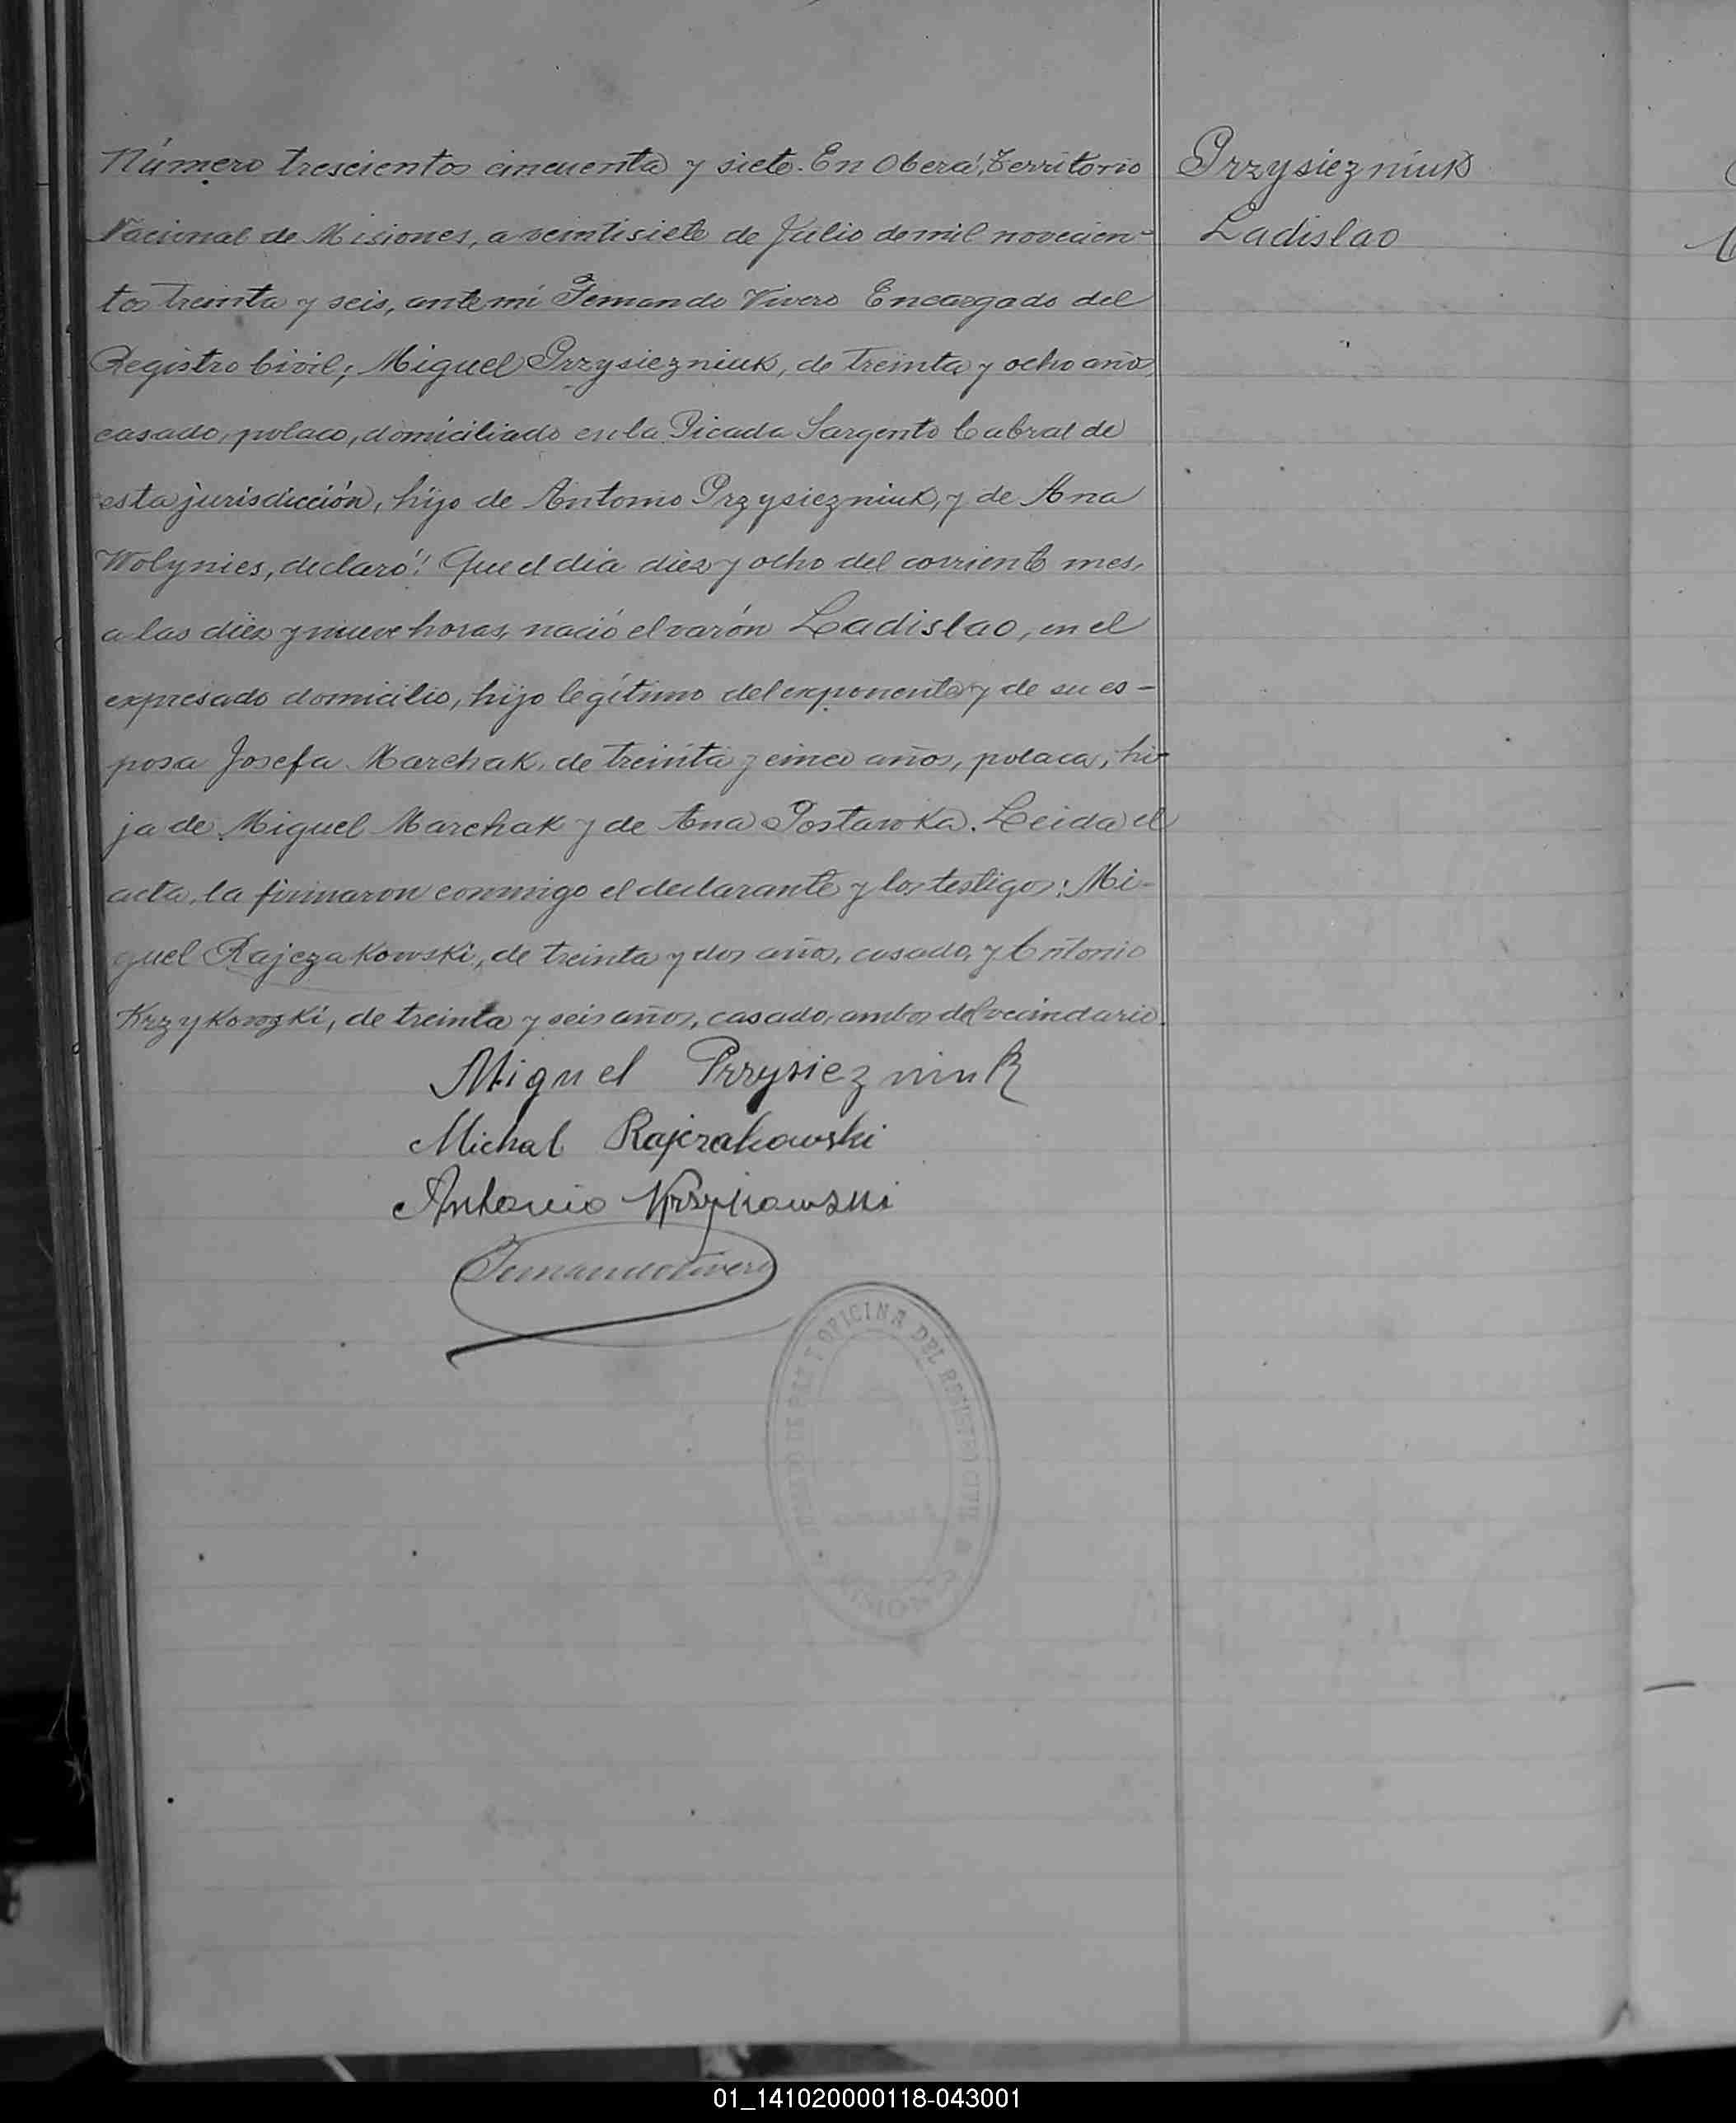 Número trescientos cincuenta y siete. En Oberá, Territorio
Nacional de Misiones, a veintisiete de Julio de mil novecien-
tos treinta y seis, ante mí Fernando Vivero Encargado del
Registro Civil; Miguel Przysiezniuk, de treinta y ocho años,
casado, polaco, domiciliado en la Picada Sargento Cabral de
esta jurisdicción, hijo de Antonio Przysiezniuk, y de Ana
Wolynies, declaró: Que el día diez y ocho del corriente mes,
a las diez y nueve horas, nació el varón Ladislao, en el
expresado domicilio, hijo legítimo del exponente y de su es-
posa Josefa Marchak, de treinta y cinco años, polaca, hi-
ja de Miguel Marchak y de Ana Postawka. Leida el
acta, la firmaron conmigo el declarante y los testigos: Mi-
guel Rajczakowski, de treinta y dos años, casado, y Antonio
Krzykowski, de treinta y seis años, casado, ambos del vecindario.
Miguel Przysiezniuk
Michal Rajczakowski
Antonio Krzykowski
Fernando Vivero
JUZGADO DE PAZ Y OFICINA DEL REGISTRO CIVIL
MISIONES
Przysiezniuk
Ladislao
01_141020000118-043001